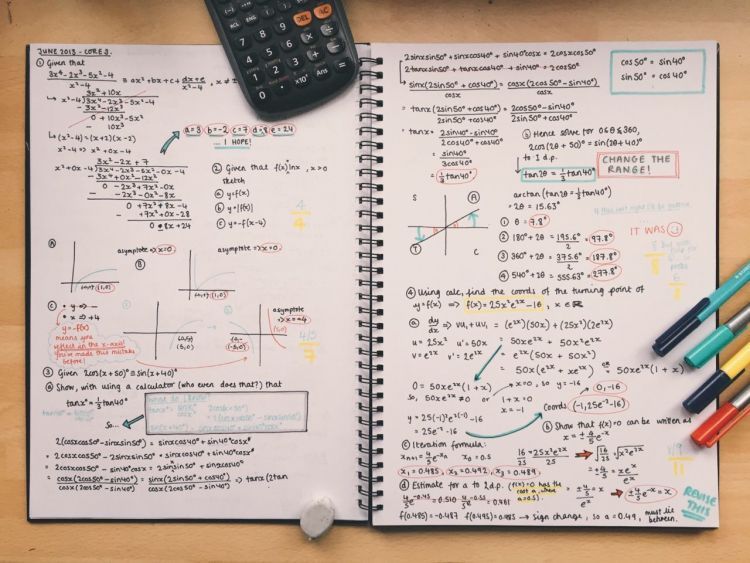 JUNE 2013 - CORE 3.
① Given that
3x⁴-2x³-5x²-4 / x²-4 ≡ ax²+bx+c+ dx+e / x²-4, x≠
3x²+10x
↳ x²-4 | 3x⁴-2x³-5x²-4
3x⁴-12x²
0 + 10x³-5x²
- 10x³
↳ (x²-4) = (x+2)(x-2)
x²-4 ⇒ x²+0x-4
a=3 b=-2 c=7 d=-8 e=24
... I HOPE!
3x²-2x+7
x²+0x-4 | 3x⁴-2x³-5x²-0x-4
3x⁴+0x³-12x²
0 -2x³+7x²-0x
- -2x³-0x²-8x
0 +7x²+8x-4
- +7x²+0x-28
0 +8x+24
② Given that f(x) lnx, x>0
sketch
ⓐ y=f(x)
ⓑ y=|f(x)|
ⓒ y=-f(x-4)
4/4
Ⓐ asymptote ⇒ x=0
(1,0)
Ⓑ asymptote ⇒ x=0
(1,0)
Ⓒ • y ⇒ -
• x ⇒ +4
y=-f(x)
means you
reflect in the x-axis!
You've made this mistake
before!
①
(5,0)
②
asymptote
⇒ x=+4
(5,0)
4/5
7
③ Given 2cos(x+50°) ≡ sin(x+40°)
ⓐ Show, with using a calculator (who even does that?) that
tanx° = ⅓tan40°
So...
2(cosxcos50°-sinxsin50°) = sinxcos40°+sin40°cosx°
= 2cosxcos50° - 2sinxsin50° = sinxcos40°+sin40°cosx°
= 2cosxcos50° - sin40°cosx = 2sinxsin50° + sinxcos40°
= cosx(2cos50°-sin40°) / cosx(2cos50°-sin40°) = sinx(2sin50°+cos40°) / cosx(2cos50°-sin40°) ⇒ tanx(2tan
2sinxsin50° + sinxcos40° + sin40°cosx = 2cosxcos50°
2tanxsin50° + tanxcos40° + sin40° = 2cos50°
↳ sinx(2sin50°+cos40°) / cosx = cosx(2cos50°-sin40°) / cosx
cos50° = sin40°
sin50° = cos40°
= tanx(2sin50°+cos40°) / 2sin50°+cos40° = 2cos50°-sin40° / 2sin50°+cos40°
tanx = 2sin40°-sin40° / 2cos40°+cos40°
= sin40° / 3cos40°
= ⅓tan40°
ⓑ Hence solve for 0≤θ≤360,
2cos(2θ+50°) = sin(2θ+40°)
to 1 d.p.
↳ tan2θ = ⅓tan40°
CHANGE THE
RANGE!
arctan(tan2θ=⅓tan40°)
= 2θ = 15.63°
S A
T C
① θ = 7.8°
② 180°+2θ = 195.6° / 2 = 97.8°
③ 360°+2θ = 375.6° / 2 = 187.8°
④ 540°+2θ = 555.63° = 277.8°
IT WAS
④ Using calc, find the coords of the turning point of
y=f(x) ⇒ f(x) = 25x²e²ˣ-16, x∈ℝ
ⓐ dy/dx ⇒ vu₁+uv₁ = (e²ˣ)(50x) + (25x²)(2e²ˣ)
u=25x² u'=50x = 50xe²ˣ + 50x²e²ˣ
v=e²ˣ v'=2e²ˣ = e²ˣ(50x+50x²)
= 50x(e²ˣ+xe²ˣ) OR 50xe²ˣ(1+x)
0 = 50xe²ˣ(1+x)
So, 50xe²ˣ ≠ 0 or 1+x=0
x=-1
x=0, so y=-16
0,-16
Coords (-1, 25e⁻²-16)
y = 25(-1)²e²⁽⁻¹⁾-16
= 25e⁻²-16
ⓑ Show that f(x)=0 can be written as
x = ±⅘e⁻ˣ
ⓒ Iteration formula:
xₙ₊₁ = ⅘e⁻ˣn x₀=0.5
x₁=0.485, x₂=0.492, x₃=0.489.
16 = 25x²e²ˣ / 25 ⇒ √16/25 = √x²e²ˣ
= ±4/5 = xeˣ / eˣ
= ±4/5 / eˣ = x ⇒ ±⅘e⁻ˣ = x
11
ⓓ Estimate for a to 2d.p. (f(x)=0 has the
root a, where
a=0.5).
f(0.485) = -0.487 f(0.495) = 0.485 → sign change, so a=0.49, must lie
between.
REVISE
THIS